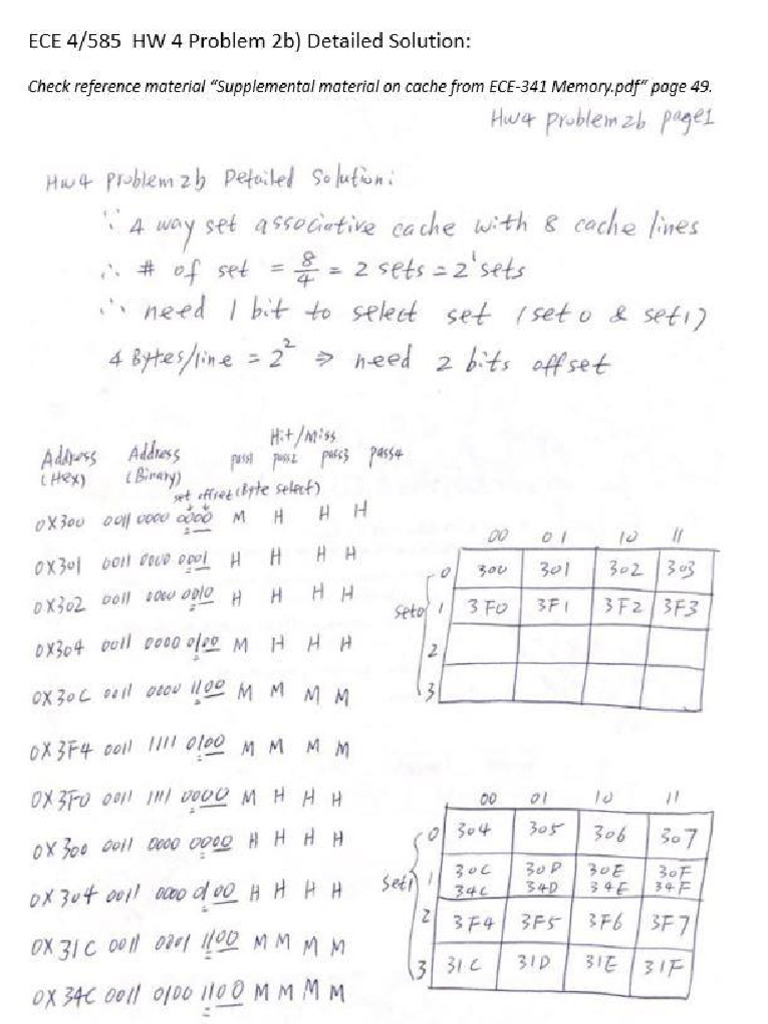 ECE 4/585 HW 4 Problem 2b) Detailed Solution:
Check reference material “Supplemental material on cache from ECE-341 Memory.pdf” page 49.
HW4 Problem 2b page1
HW4 Problem 2b Detailed Solution:
∵ 4 way set associative cache with 8 cache lines
∴ # of set = 8/4 = 2 sets = 2¹ sets
∴ need 1 bit to select set (set0 & set1)
4 Bytes/line = 2² ⇒ need 2 bits offset
Hit/Miss
Address Address pass1 pass2 pass3 pass4
(Hex) (Binary)
set offset (Byte select)
0X300 0011 0000 0000 M H H H
0X301 0011 0000 0001 H H H H
0X302 0011 0000 0010 H H H H
0X304 0011 0000 0100 M H H H
0X30C 0011 0000 1100 M M M M
0X3F4 0011 1111 0100 M M M M
0X3F0 0011 1111 0000 M H H H
0X300 0011 0000 0000 H H H H
0X304 0011 0000 0100 H H H H
0X31C 0011 0001 1100 M M M M
0X34C 0011 0100 1100 M M M M
00 01 10 11
0 300 301 302 303
set0 1 3F0 3F1 3F2 3F3
2
3
00 01 10 11
0 304 305 306 307
30C 30D 30E 30F
set1 1 34C 34D 34E 34F
2 3F4 3F5 3F6 3F7
3 31C 31D 31E 31F